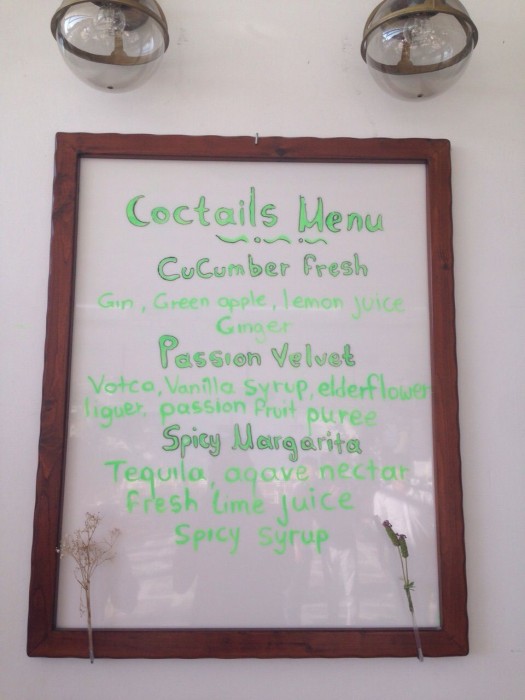 Coctails Menu
CuCumber Fresh
Gin, Green apple, lemon juice
Ginger
Passion Velvet
Votca, Vanilla Syrup, elderflower
liguer, passion fruit puree
Spicy Margarita
Tequila, agave nectar
Fresh lime juice
Spicy Syrup